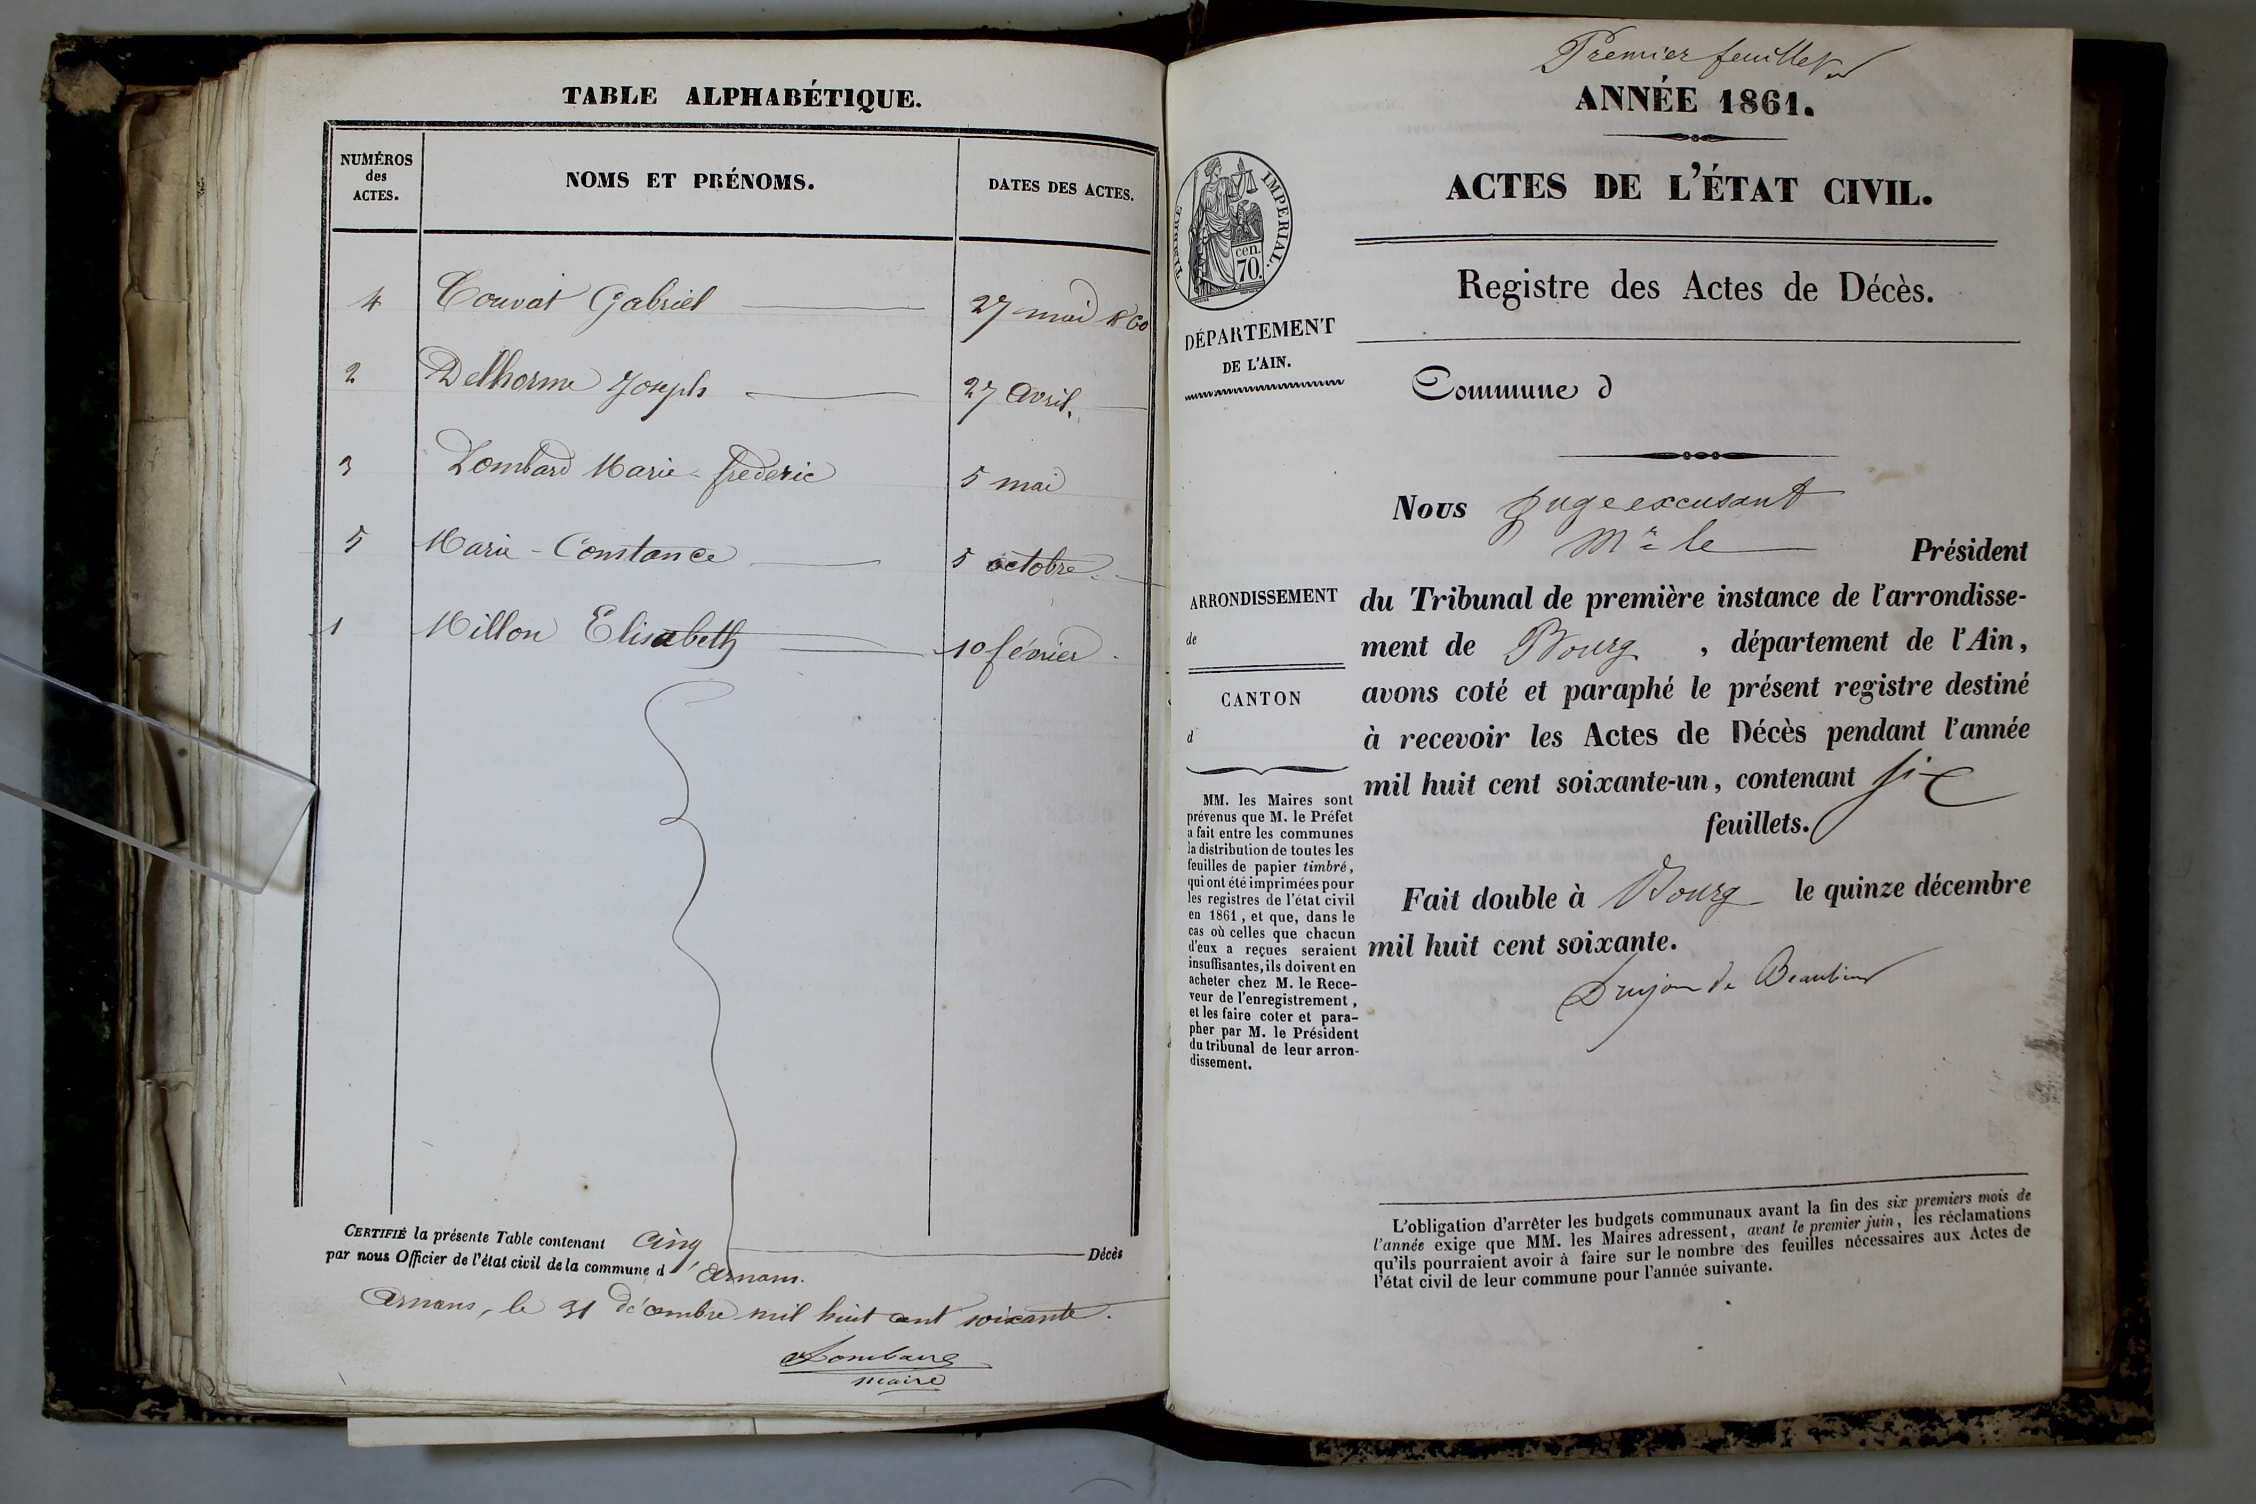 TABLE ALPHABÉTIQUE.
NUMÉROS des ACTES.
NOMS ET PRÉNOMS.
DATES DES ACTES.
4 Couvat Gabriel 27 mai 1860
2 Delhorme Joseph 27 avril.
3 Lombard Marie-frederic 5 mai
5 Marie-Constance 5 octobre.
1 Millon Elisabeth 10 février.
CERTIFIÉ la présente Table contenant cinq Décès
par nous Officier de l'état civil de la commune d'arnans.
arnans, le 31 décembre mil huit cent soixante.
Lombard
maire
Premier feuillet
ANNÉE 1861.
ACTES DE L'ÉTAT CIVIL.
TIMBRE IMPERIAL.
cen.
70.
Registre des Actes de Décès.
DÉPARTEMENT
DE L'AIN.
Commune d
Nous juge excusant
Mr le Président
du Tribunal de première instance de l'arrondisse-
ment de Bourg , département de l'Ain,
avons coté et paraphé le présent registre destiné
à recevoir les Actes de Décès pendant l'année
mil huit cent soixante-un, contenant six
feuillets.
Fait double à Bourg le quinze décembre
mil huit cent soixante.
Drujon de Beaulieu
ARRONDISSEMENT
de
CANTON
d
MM. les Maires sont
prévenus que M. le Préfet
a fait entre les communes
la distribution de toutes les
feuilles de papier timbré,
qui ont été imprimées pour
les registres de l'état civil
en 1861, et que, dans le
cas où celles que chacun
d'eux a reçues seraient
insuffisantes, ils doivent en
acheter chez M. le Rece-
veur de l'enregistrement,
et les faire coter et para-
pher par M. le Président
du tribunal de leur arron-
dissement.
L'obligation d'arrêter les budgets communaux avant la fin des six premiers mois de
l'année exige que MM. les Maires adressent, avant le premier juin, les réclamations
qu'ils pourraient avoir à faire sur le nombre des feuilles nécessaires aux Actes de
l'état civil de leur commune pour l'année suivante.